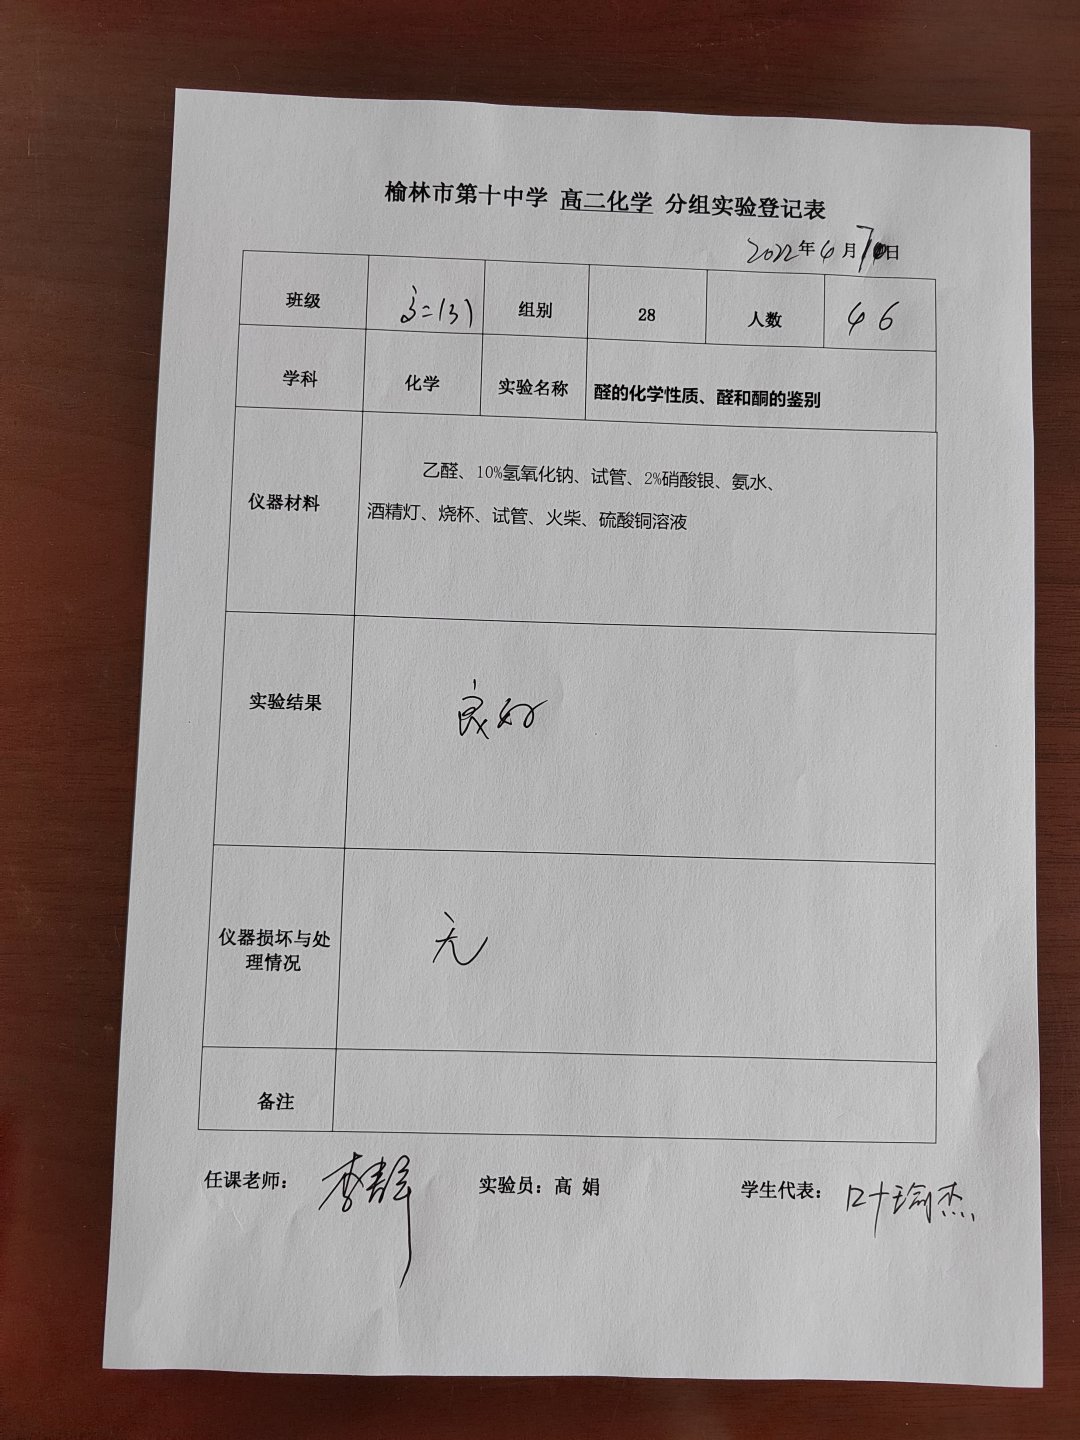 榆林市第十中学 高二化学 分组实验登记表
2022年4月 日
班级 高二(3) 组别 28 人数 46
学科 化学 实验名称 醛的化学性质、醛和酮的鉴别
仪器材料
乙醛、10%氢氧化钠、试管、2%硝酸银、氨水、
酒精灯、烧杯、试管、火柴、硫酸铜溶液
实验结果 良好
仪器损坏与处
理情况
无
备注
任课老师: 李静 实验员:高 娟 学生代表: 叶瑜杰